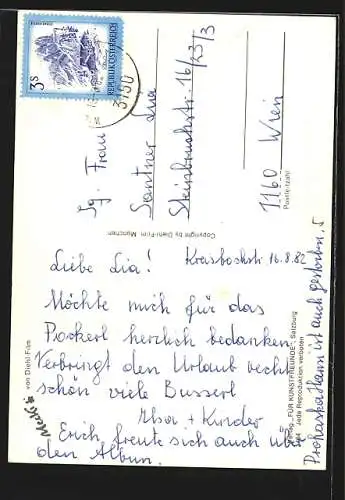 3S
REPUBLIK ÖSTERREICH
3150
Sg. Frau
Santner Lia
Steinbruchstr. 16/23/3
1160 Wien
Postleitzahl
Copyright by Diehl-Film, München
Krasbachstr 16.8.82
Liebe Lia!
Möchte mich für das
Packerl herzlich bedanken
Verbringt den Urlaub recht
schön viele Busserl
Elsa + Kinder
Erich freute sich auch über
den Album.
Prohaskaflami ist auch gestorben,
Mecki
von Diehl Film
Verlag „FÜR KUNSTFREUNDE", Salzburg
Jede Reproduktion verboten